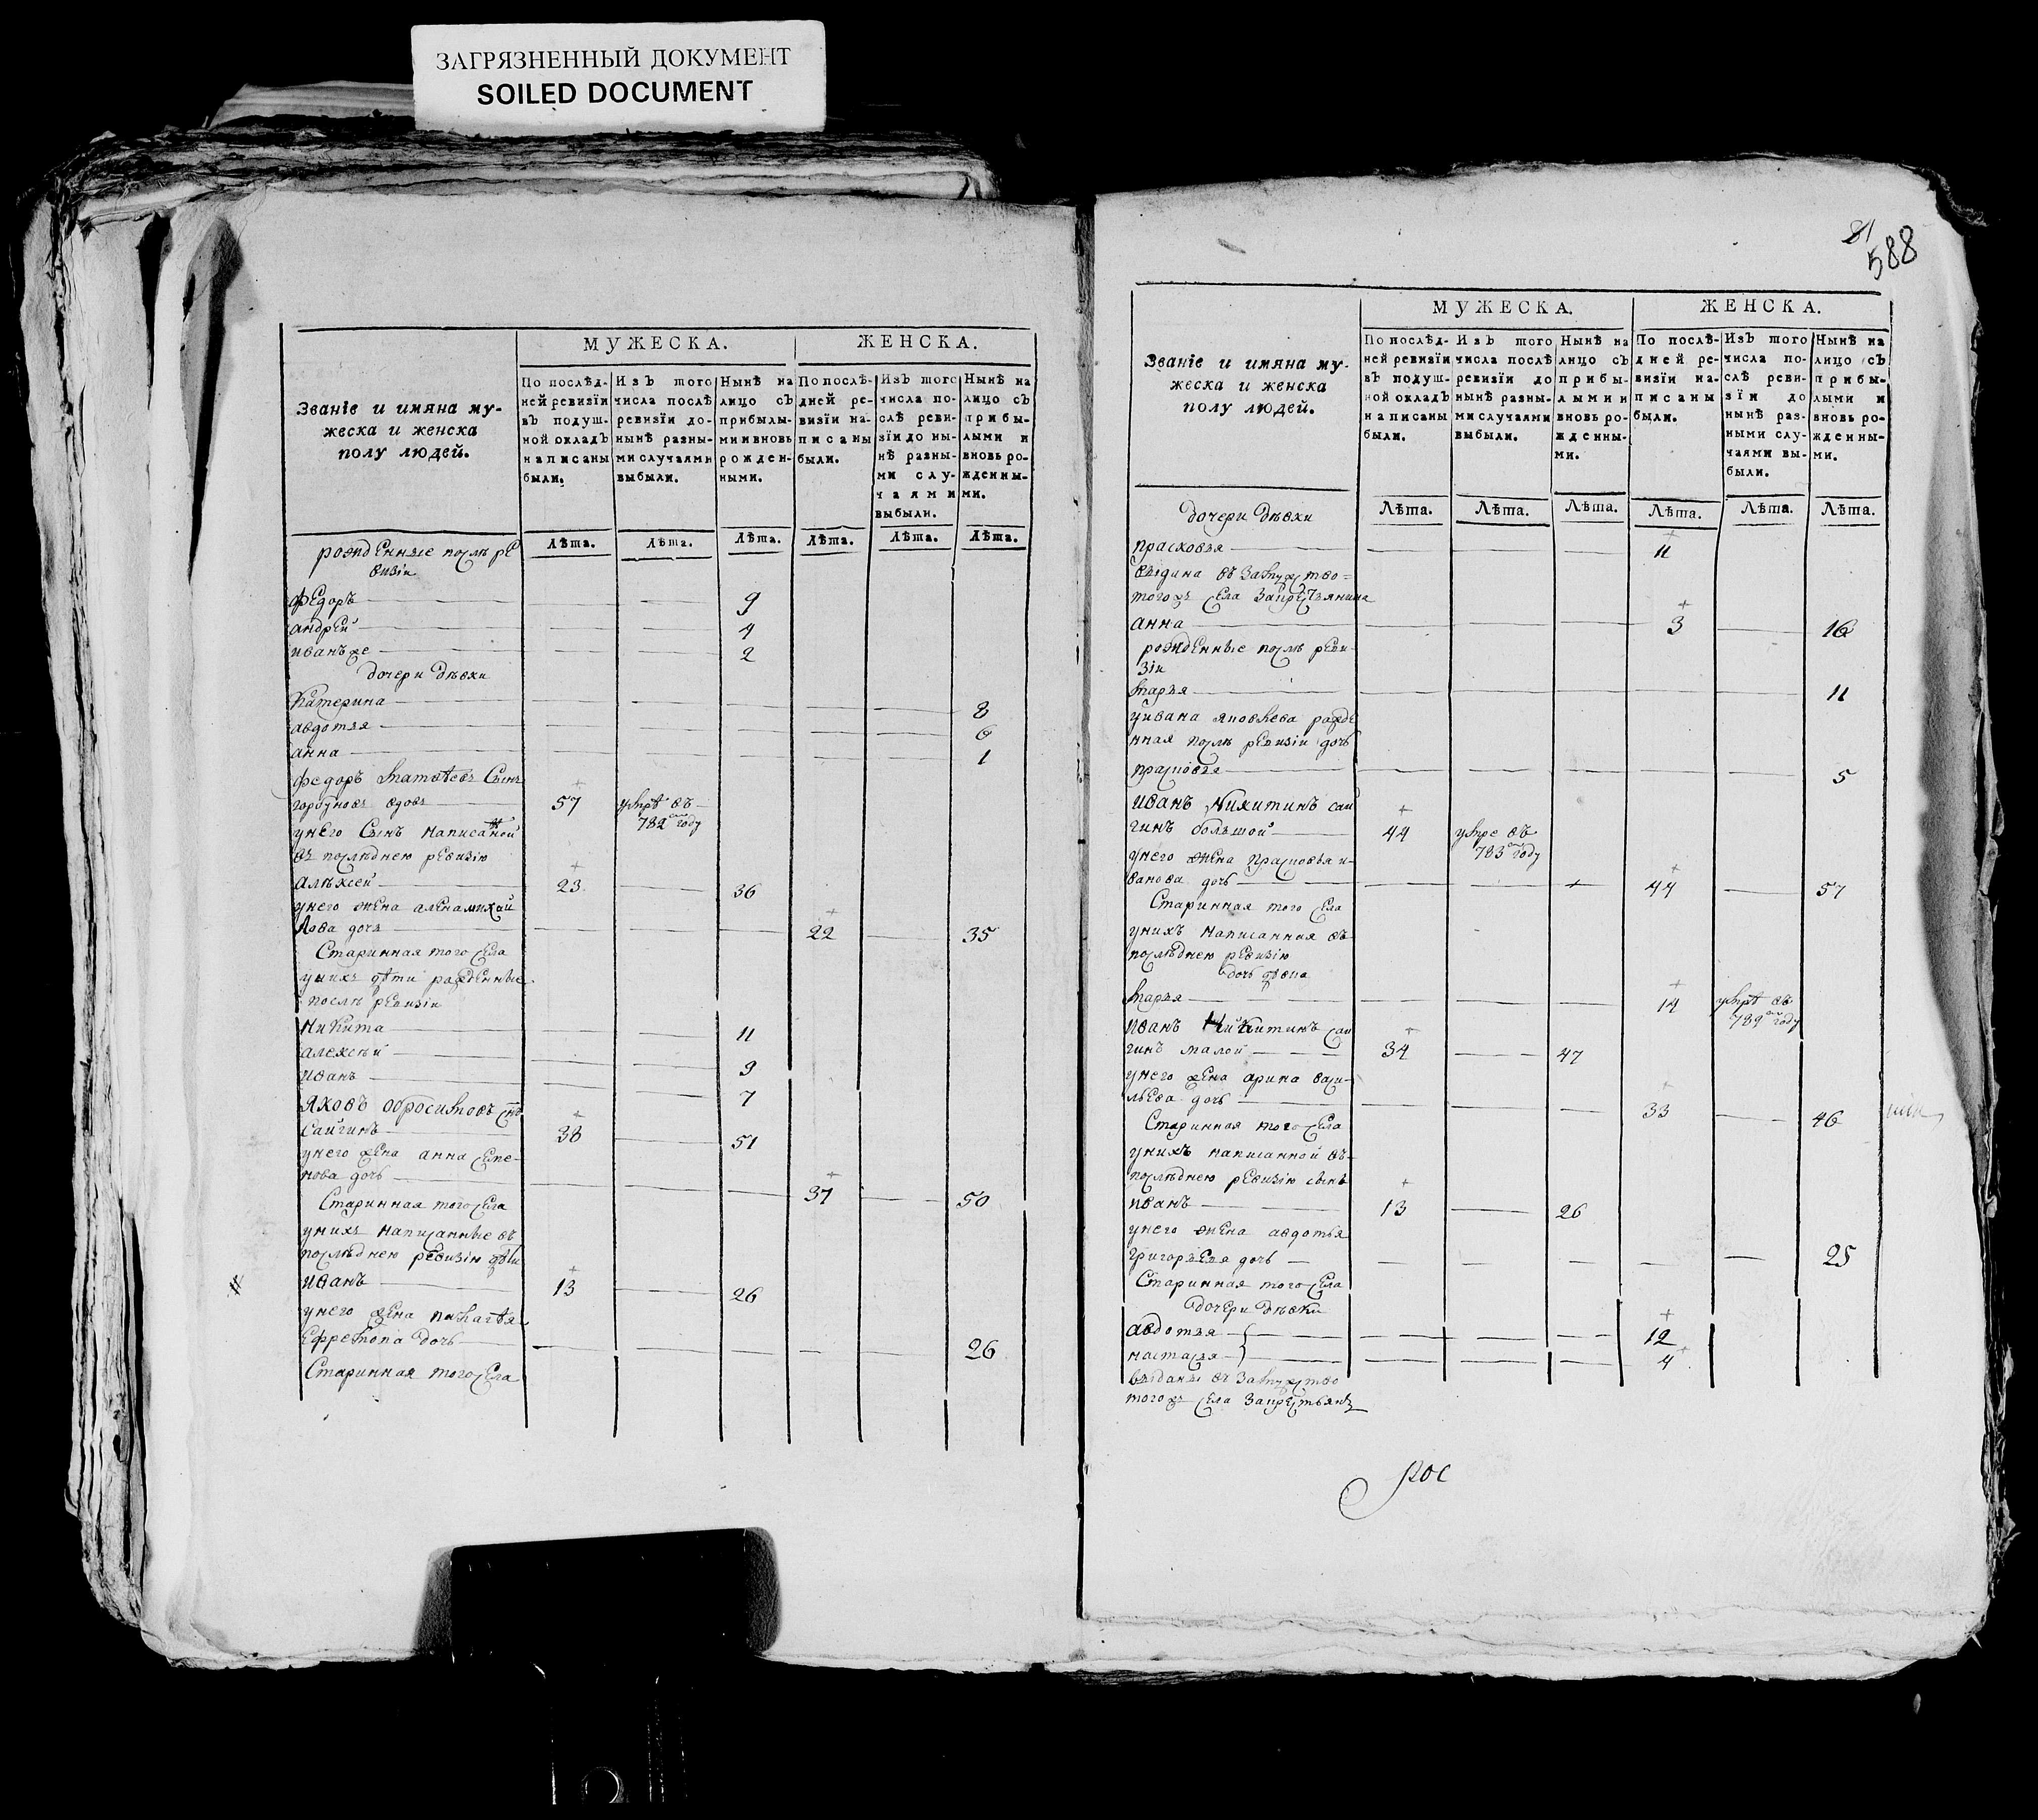 ЗАГРЯЗНЕННЫЙ ДОКУМЕНТ
SOILED DOCUMENT
Званіе и имяна му-
жеска и женска
полу людей.
МУЖЕСКА.
ЖЕНСКА.
По послѣд-
ней ревизїи
въ подуш-
ной окладъ
написаны
были.
Изъ того
числа послѣ
ревизїи до-
нынѣ разны-
ми случаями
выбыли.
Нынѣ на
лицо съ
прибылы-
ми и вновь
рожден-
ными.
По послѣ-
дней ре-
визїи на-
писаны
были.
Изъ того
числа по-
слѣ реви-
зїи до ны-
нѣ разны-
ми слу-
чаями
выбыли.
Нынѣ на
лицо съ
прибы-
лыми и
вновь ро-
жденны-
ми.
Лѣта. Лѣта. Лѣта. Лѣта. Лѣта. Лѣта.
рожденные послѣ ре
визіи
федоръ 9
андрей 4
иванъ же 2
дочери дѣвки
Катерина 8
авдотья 6
анна 1
федоръ матвѣевъ Сынъ
горбуновъ вдовъ 57 умрѣ въ
782 году
у него Сынъ написанной
въ послѣднею ревизію
алѣксей 23 36
у него жена алена михай
лова дочь 22 35
Старинная того села
у нихъ дѣти рожденные
послѣ ревизіи
Никита 11
алексѣй 9
Иванъ 7
Яковъ обросимовъ снъ
Сайгинъ 38 51
у него жена анна семе-
нова дочь 37 50
Старинная того села
у нихъ написанные въ
послѣднею ревизію дѣти
Иванъ 13 26
у него жена пелагѣя
Ефремова дочь 26
Старинная того села
81
588
Званіе и имяна му-
жеска и женска
полу людей.
МУЖЕСКА.
ЖЕНСКА.
По послѣд-
ней ревизїи
въ подуш-
ной окладъ
написаны
были.
Изъ того
числа послѣ
ревизїи до
нынѣ разны-
ми случаями
выбыли.
Нынѣ на
лицо съ
прибы-
лыми и
вновь ро-
жденны-
ми.
По послѣ-
дней ре-
визїи на-
писаны
были.
Изъ того
числа по-
слѣ реви-
зїи до
нынѣ раз-
ными слу-
чаями вы-
были.
Нынѣ на
лицо съ
прибы-
лыми и
вновь ро-
жденны-
ми.
Лѣта. Лѣта. Лѣта. Лѣта. Лѣта. Лѣта.
дочери дѣвки
прасковья 11
выдина въ замужство
того жъ села за крестьянина
анна 3 16
рожденные послѣ реви-
зіи
марья 11
у ивана яковлева рожде
нная послѣ ревизіи дочь
прасковья 5
иванъ Никитинъ сай
гинъ большой 44 умре въ
783 году
у него жена прасковья и-
ванова дочь 44 57
Старинная того села
у нихъ написанная въ
послѣднею ревизію
дочь дѣвка
марья 14 умрѣ въ
789 году
Иванъ Никитинъ сай
гинъ малой 34 47
у него жена арина васи-
льева дочь 33 46
Старинная того села
у нихъ написанной въ
послѣднею ревизію сынъ
иванъ 13 26
у него жена авдотья
григорьева дочь 25
Старинная того села
дочери дѣвки
авдотья 12
настасья 4
выданы въ замужство
того жъ села за крестьянъ